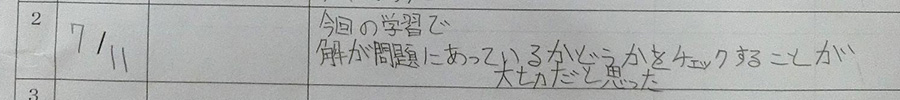 2
7/11
今回の学習で
解が問題にあっているかどうかをチェックすることが
大切だと思った
3